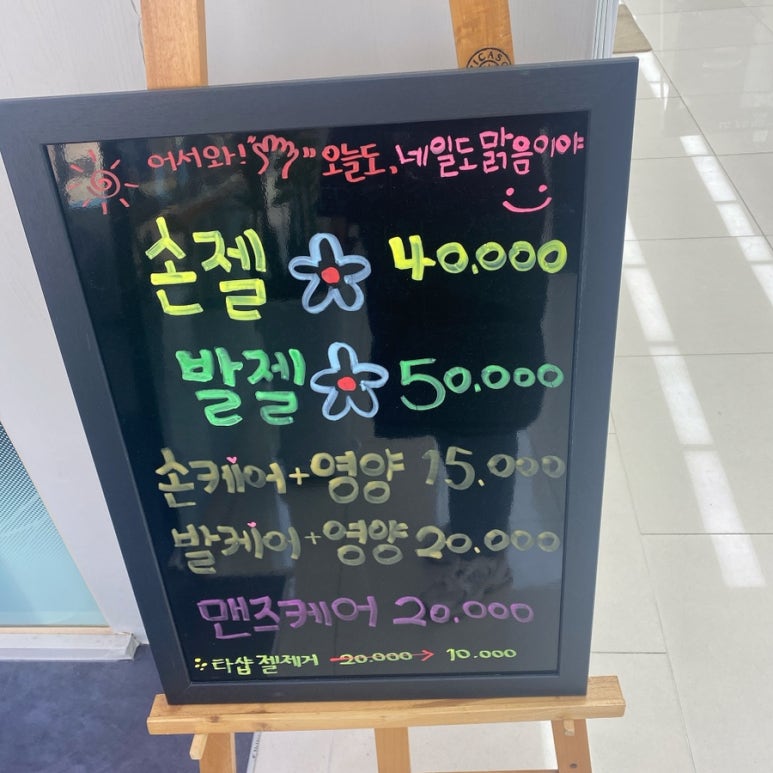 어서와! "" 오늘도, 네일도 맑음이야
손젤 40.000
발젤 50.000
손케어+영양 15.000
발케어+영양 20.000
맨즈케어 20.000
타샵 젤제거 20.000 → 10.000